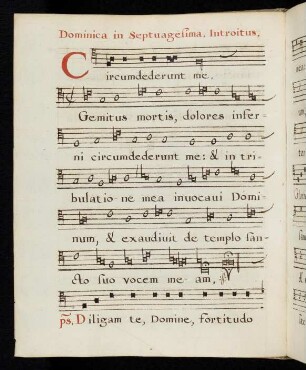 Dominica in Septuagesima. Introitus.
Circumdederunt me.
Gemitus mortis, dolores infer-
ni circumdederunt me: & in tri-
bulatione mea inuocaui Domi-
num, & exaudiuit de templo san-
cto suo vocem me- am.
ps. Diligam te, Domine, fortitudo